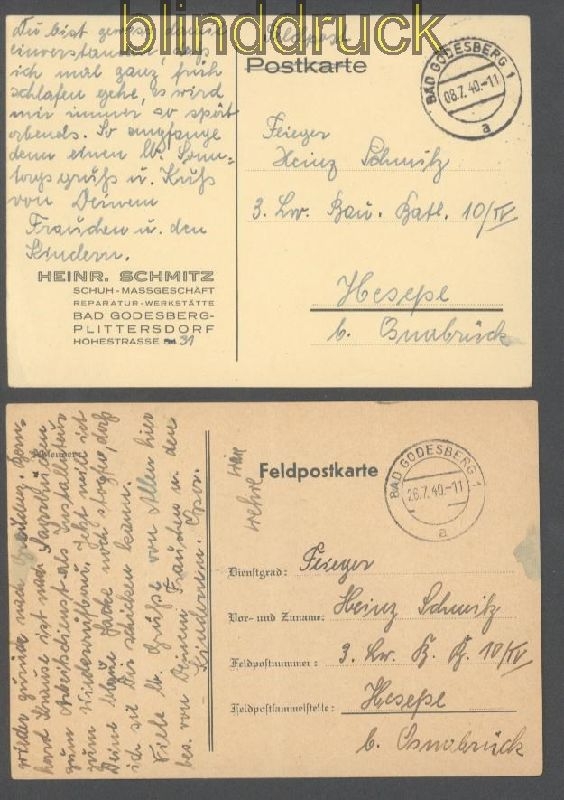 blinddruck
Du bist gewiss damit
einverstanden, dass
ich mal ganz früh
schlafen gehe, es wird
mir immer so spät
abends. So empfange
denn einen lb. Sonn-
tagsgruß u. Kuss
von Deinem
Frauchen u. den
Kindern.
HEINR. SCHMITZ
SCHUH-MASSGESCHÄFT
REPARATUR-WERKSTÄTTE
BAD GODESBERG-
PLITTERSDORF
HOHESTRASSE 31
Feldpost
Postkarte
BAD GODESBERG 1
08.7.40.-11
a
Flieger
Heinz Schmitz
3. Lw. Bau. Batl. 10/IV
Hesepe
b. Osnabrück
wieder zurück nach
hard Krause ist nach Saarbrücken
zum Arbeitsdienst als Installateur
zum Wiederaufbau.
Deine
ich sie Dir schicken kann.
Viele lb. Grüße von Allen hier
bes. von Deinem Frauchen u. den
Kindern.
Feldpostkarte
BAD GODESBERG 1
26.7.40.-11
a
Dienstgrad: Flieger
Vor- und Zuname: Heinz Schmitz
Feldpostnummer: 3. Lw. B. B. 10/IV
Feldpostsammelstelle: Hesepe
b. Osnabrück